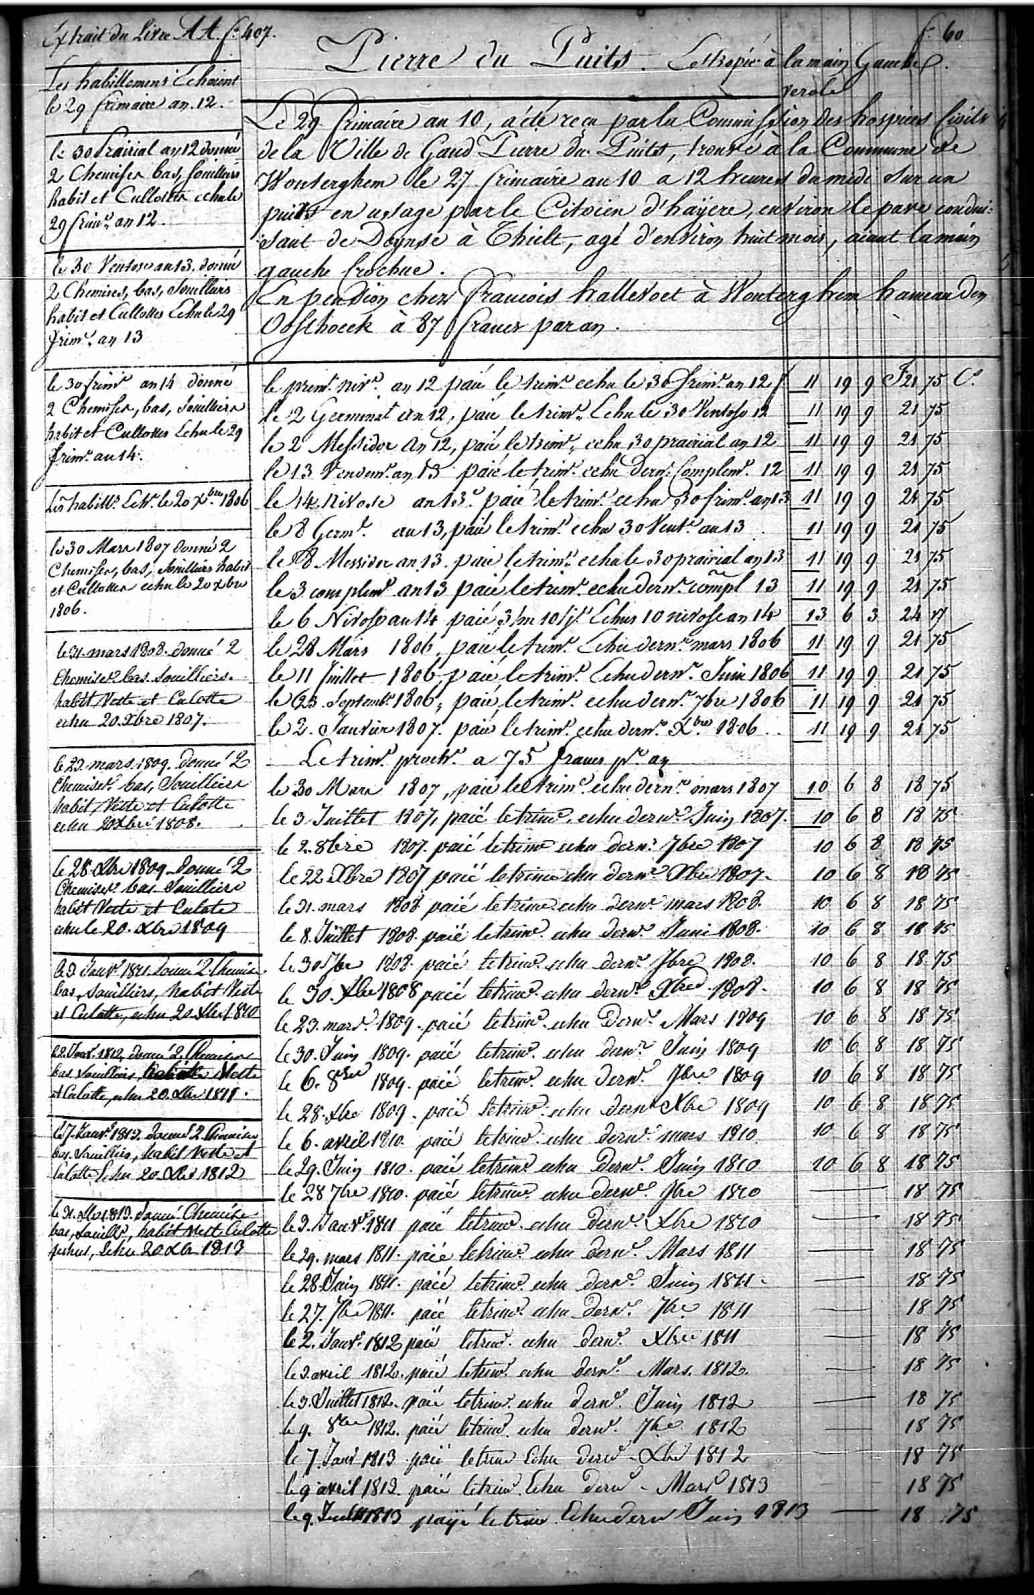 Extrait du Livre AA. f.º 407.
f.º 60
Pierre du Puits. Estropié à la main Gauche.
verolé
Les habillemens Echoient
le 29 frimaire an 12.
le 30 Prairial an 12 donné
2 Chemises bas, souilliers
habit et Cullottes echu le
29 frim.e an 12.
le 30 Ventose an 13. donné
2 Chemises, bas, souilliers
habit et Cullottes Echu le 29
frim.e an 13
le 30 frim.e an 14 donné
2 Chemises, bas, souilliers
habit et Cullottes Echu le 29
frim.e an 14.
Les habill.s Ech.t le 20 Xbre 1806
le 30 Mars 1807 donné 2
Chemises, bas, souilliers habit
et Cullottes echu le 20 Xbre
1806.
le 31. mars 1808. donné 2
Chemises. bas. souilliers.
habit Veste et Culotte
echu 20. Xbre 1807.
le 23. mars. 1809. donné 2
chemises. bas, souilliers
habit, Veste et Culotte
echu 20 Xbre 1808.
le 28 Xbre 1809. donné 2
Chemises bas souilliers
habit Veste et Culote
echu le 20. Xbre 1809
le 3 Janv.r 1811. donné 2 Chemises.
bas, souilliers, habit Veste
et Culotte, echu 20 Xbre 1810
le 2. Janv. 1812, donné 2 Chemises
bas souilliers, habit Veste
et Culotte, echu 20. Xbre 1811.
le 7. Janv.r 1813. donné 2 Chemises
bas. souilliers, habit Veste et
Culotte Echu 20 Xbre 1812
le 31. Xbre 1813. donné Chemises
bas, souill.rs, habit Veste Culotte
echu 20 Xbre 1813
Le 29 frimaire an 10, a été reçu par la Commission des hospices Civils
de la Ville de Gand Pierre du Puits, trouvé à la Commune de
Wonterghem le 27 frimaire an 10 a 12 heures du midi sur un
puits en usage par le Citoien d'haÿere, environ le pavé condui-
sant de Deynse à Thielt, agé d'environ huit mois, aiant la main
gauche crochue.
En pension chez Francois hallevoet à Wonterghem hameau den
Oosthoeck à 87 francs par an.
le prem.r niv.e an 12 païé le trim.e echu le 30 frim.e an 12 11 19 9 F 21 75 C.s
le 2 Germinal an 12, païé le trim.e Echu le 30 Ventose 12 11 19 9 21 75
le 2 Messidor an 12, païé le trim.e echu 30 prairial an 12 11 19 9 21 75
le 13 Vendem.e an 13 païé le trim.e echu dern. Complem.e 12 11 19 9 21 75
le 14 Nivose an 13.e païé le trim.e echu 30 frim.e an 13 11 19 9 21 75
le 8 Germ.l an 13, païé le trim.e echu 30 Vent.e an 13 11 19 9 21 75
le 8 Messidor an 13. païé le trim.e echu le 30 prairial an 13 11 19 9 21 75
le 3 complem.e an 13 païé le trim.e echu dern.r compl 13 11 19 9 21 75
le 6 Nivose an 14 païé 3/m 10 Jrs Echus 10 nivose an 14 13 6 3 24
le 28 Mars 1806, païé le trim.e Echu dern.r mars 1806 11 19 9 21 75
le 11 Juillet 1806, païé le trim.e Echu dern.r Juin 1806 11 19 9 21 75
le 23 Septemb.e 1806, païé le trim.e echu dern.r 7bre 1806 11 19 9 21 75
le 2. Janvier 1807. païé le trim.e echu dern.r Xbre 1806 11 19 9 21 75
Le trim.e proch.n a 75 francs p.r an
le 30 Mars 1807, païé le trim.e echu dern.r mars 1807 10 6 8 18 75
le 3 Juillet 1807, païé le trim.e echu dern.r Juin 1807. 10 6 8 18 75
le 2. 8bre 1807. païé le trim.e echu dern.r 7bre 1807 10 6 8 18 75
le 22 Xbre 1807 païé le trim.e echu dern.r Xbre 1807. 10 6 8 18 75
le 31. mars 1808 païé le trim.e echu dern.r mars 1808. 10 6 8 18 75
le 8. Juillet 1808. païé le trim.e echu dern.r Juin 1808. 10 6 8 18 75
le 30 7bre 1808. païé le trim.e echu dern.r 7bre 1808. 10 6 8 18 75
le 30. Xbre 1808 païé le trim.e echu dern.r Xbre 1808. 10 6 8 18 75
le 23. mars. 1809. païé le trim.e echu dern.r Mars 1809 10 6 8 18 75
le 30. Juin 1809. païé le trim.e echu dern.r Juin 1809 10 6 8 18 75
le 6. 8bre 1809. païé le trim.e echu dern.r 7bre 1809 10 6 8 18 75
le 28. Xbre 1809. païé le trim.e echu dern.r Xbre 1809 10 6 8 18 75
le 6. avril 1810. païé le trim.e echu dern.r mars 1810. 10 6 8 18 75
le 29. Juin 1810. païé le trim.e echu dern.r Juin 1810 10 6 8 18 75
le 28 7bre 1810. païé le trim.e echu dern.r 7bre 1810 18 75
le 3. Janv.r 1811 païé le trim.e echu dern.r Xbre 1810 18 75
le 29. mars 1811. païé le trim.e echu dern.r Mars 1811 18 75
le 28 Juin 1811. païé le trim.e echu dern.r Juin 1811. 18 75
le 27. 7bre 1811. païé le trim.e echu dern.r 7bre 1811 18 75
le 2. Janv.r 1812 païé le trim.e echu dern.r Xbre 1811 18 75
le 3. avril 1812. païé le trim.e echu dern.r Mars. 1812. 18 75
le 3. Juillet 1812. païé le trim.e echu dern.r Juin 1812 18 75
le 9. 8bre 1812. païé le trim.e echu dern.r 7bre 1812 18 75
le 7. Janv 1813 païé le trim Echu dern.r Xbre 1812 18 75
le 9 avril 1813. païé le trim.e Echu dern.r Mars 1813 18 75
le 9. Juill 1813 payé le trim Echu dern Juin 1813 18 75